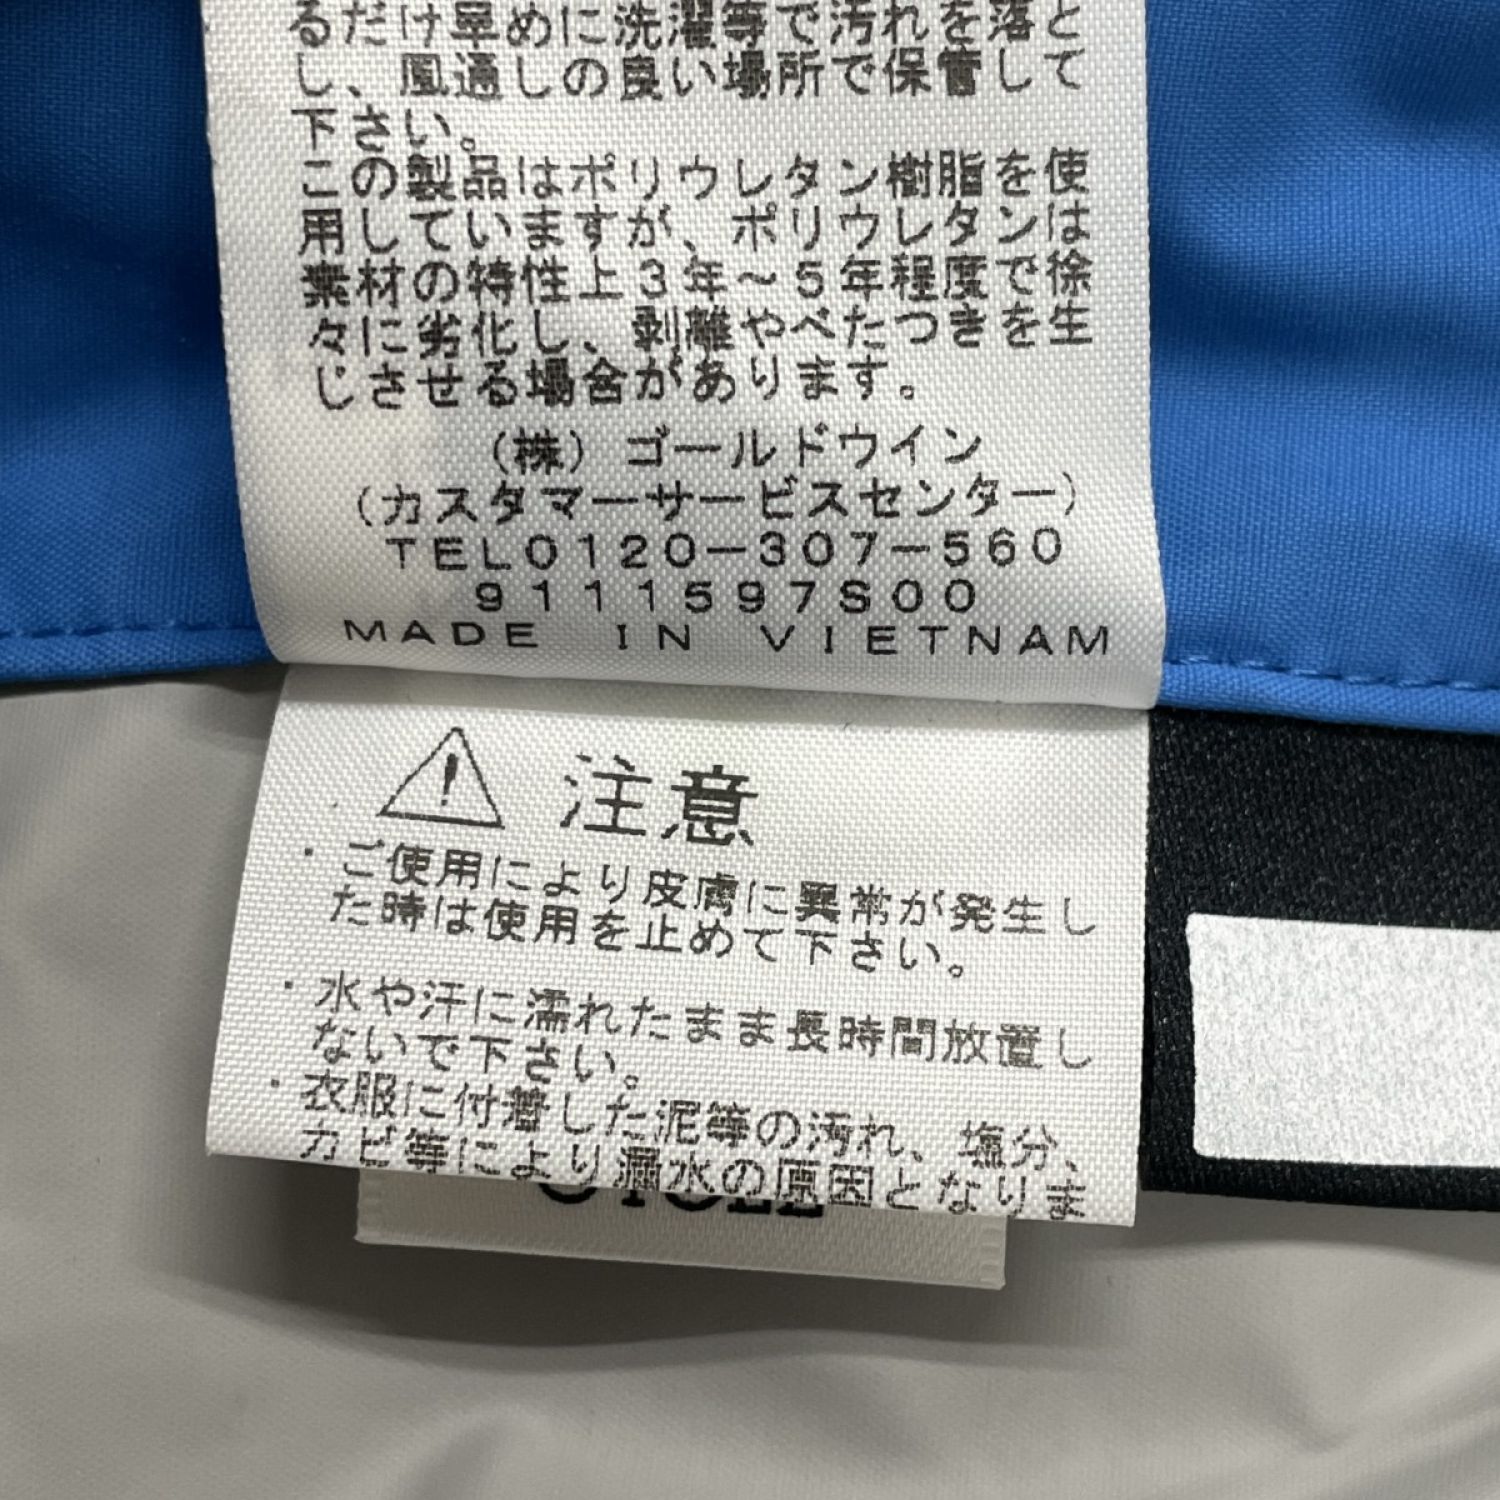 るだけ早めに洗濯等で汚れを落と
し、風通しの良い場所で保管して
下さい。
この製品はポリウレタン樹脂を使
用していますが、ポリウレタンは
素材の特性上3年～5年程度で徐
々に劣化し、剥離やべたつきを生
じさせる場合があります。
(株) ゴールドウイン
(カスタマーサービスセンター)
TEL0120-307-560
9111597S00
MADE IN VIETNAM
注意
・ご使用により皮膚に異常が発生し
た時は使用を止めて下さい。
・水や汗に濡れたまま長時間放置し
ないで下さい。
・衣服に付着した泥等の汚れ、塩分、
カビ等により漏水の原因となりま